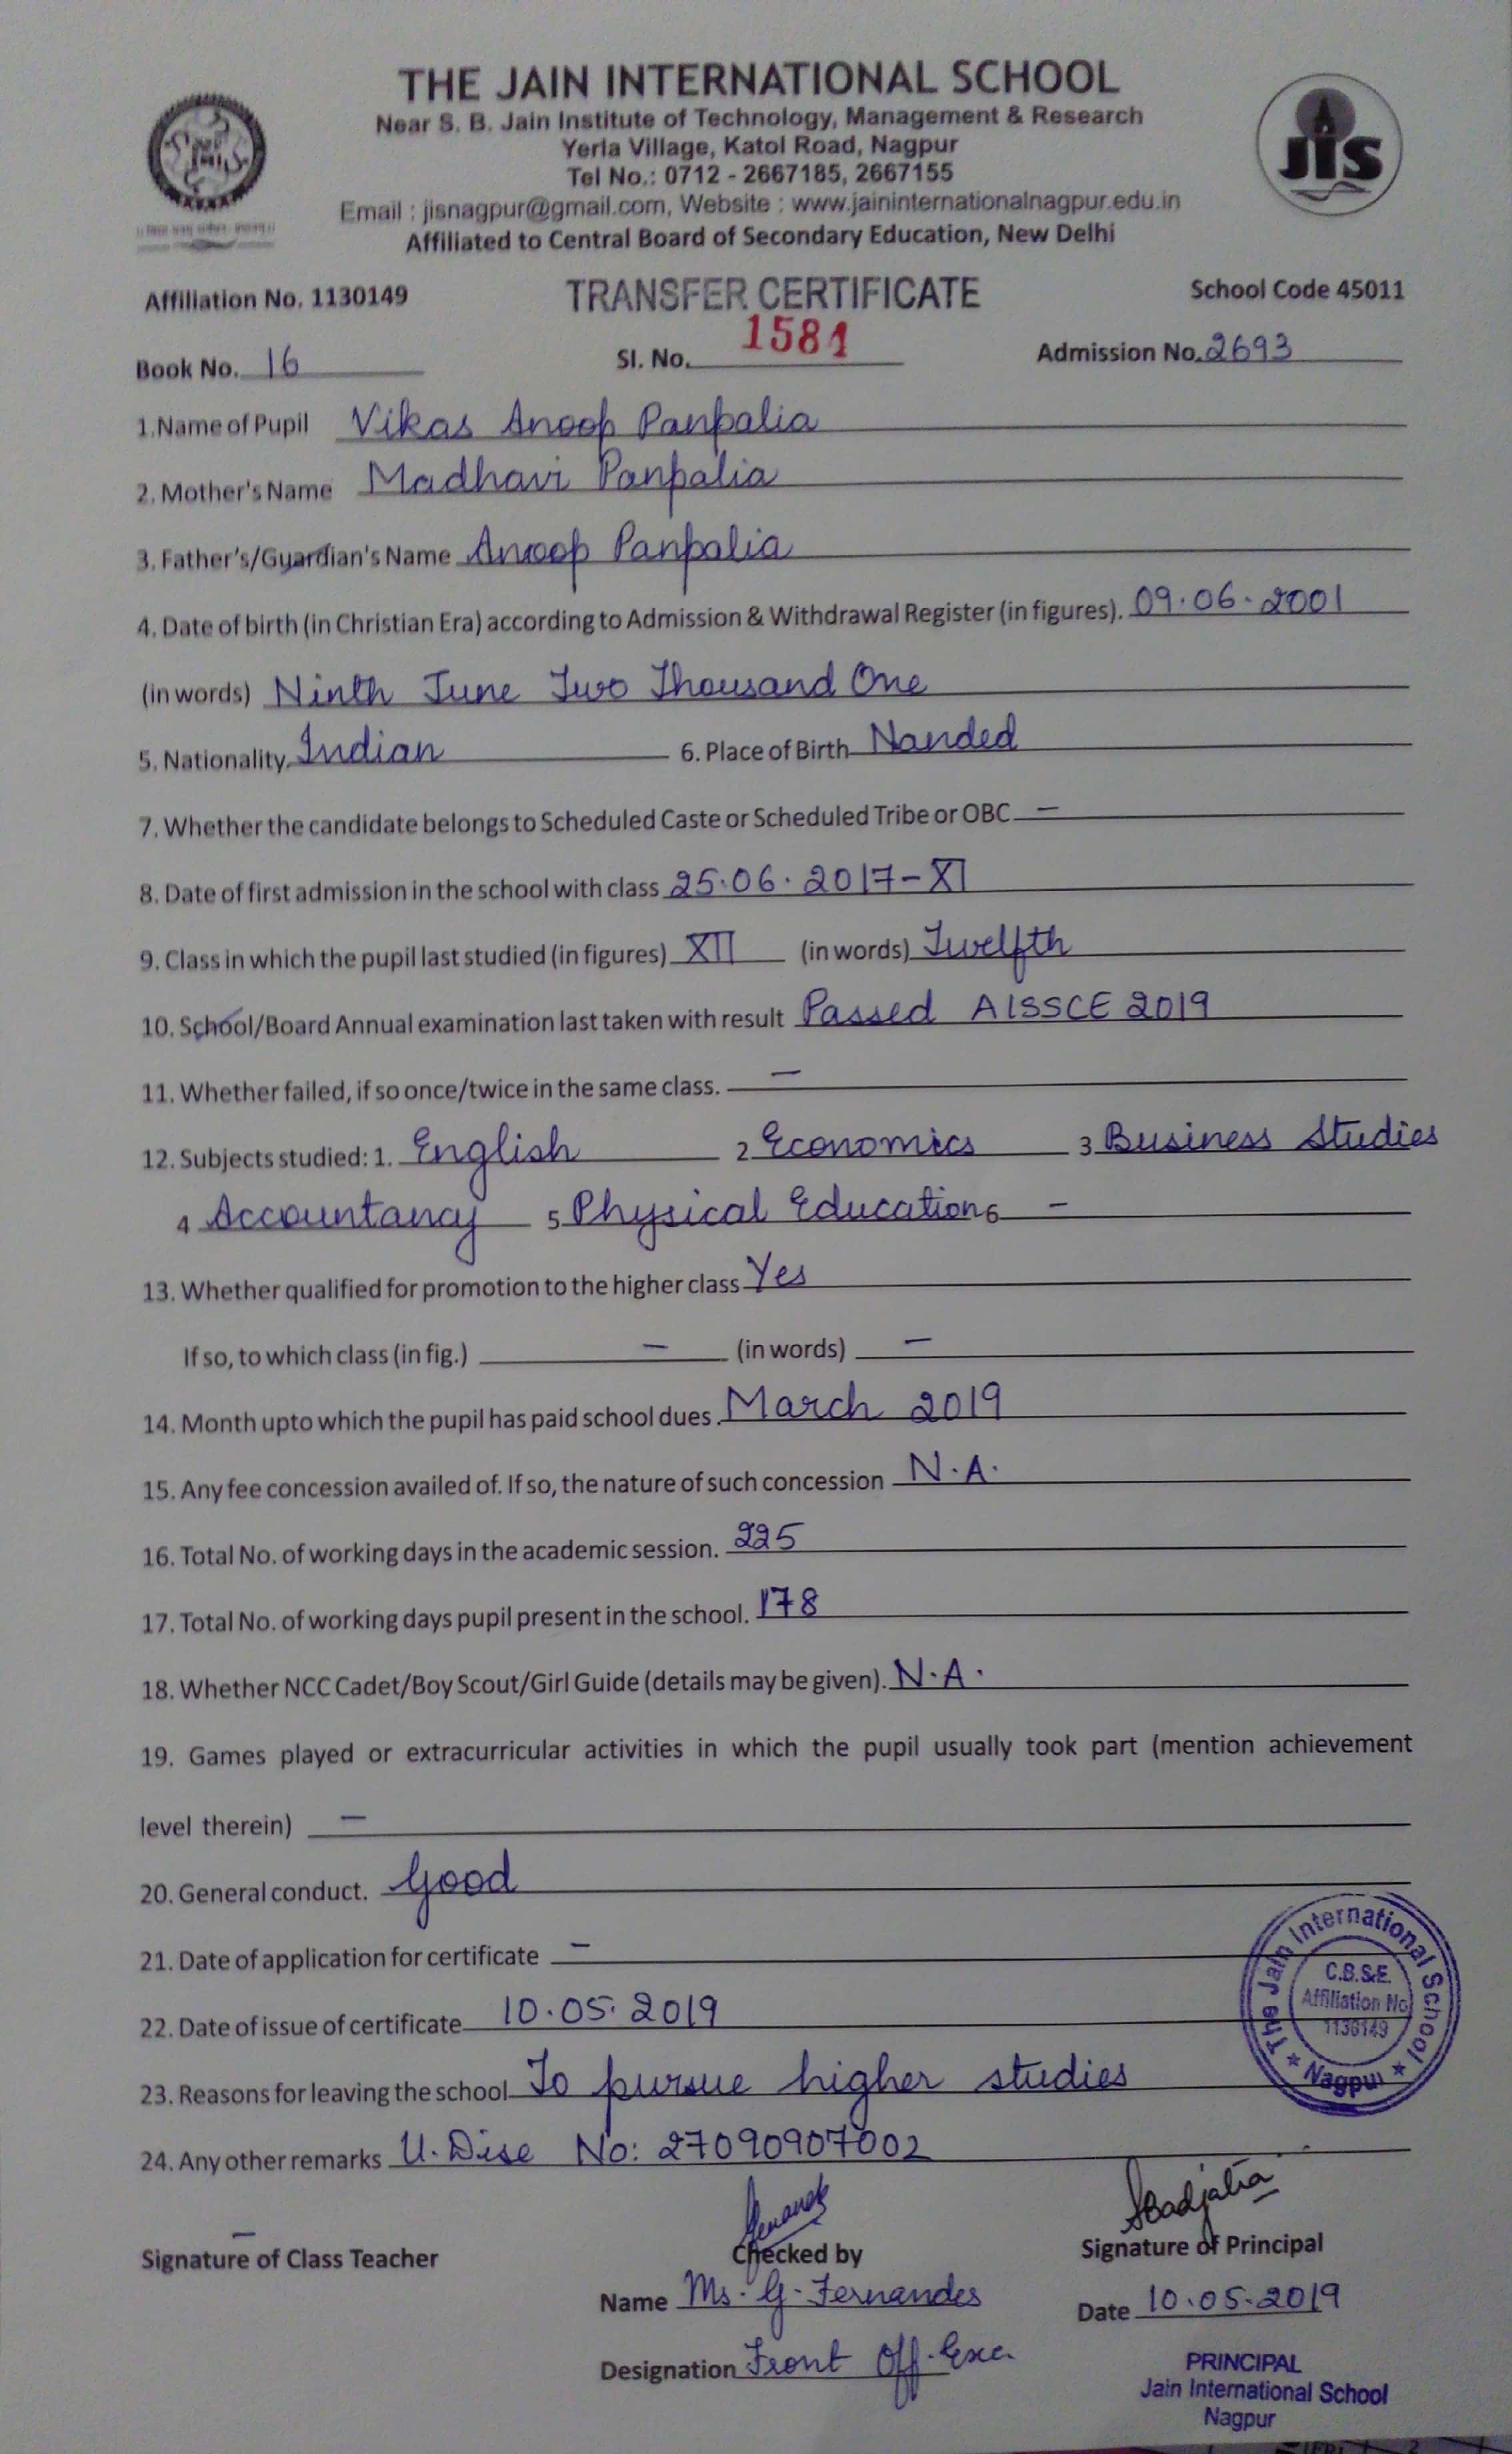 THE JAIN INTERNATIONAL SCHOOL
Near S. B. Jain Institute of Technology, Management & Research
Yerla Village, Katol Road, Nagpur
Tel No.: 0712 - 2667185, 2667155
Email : jisnagpur@gmail.com, Website : www.jaininternationalnagpur.edu.in
Affiliated to Central Board of Secondary Education, New Delhi
JIS
Affiliation No. 1130149 TRANSFER CERTIFICATE School Code 45011
Book No. 16 Sl. No. 1581 Admission No. 2693
1.Name of Pupil Vikas Anoop Panpalia
2. Mother's Name Madhavi Panpalia
3. Father's/Guardian's Name Anoop Panpalia
4. Date of birth (in Christian Era) according to Admission & Withdrawal Register (in figures). 09.06.2001
(in words) Ninth June Two Thousand One
5. Nationality Indian 6. Place of Birth Nanded
7. Whether the candidate belongs to Scheduled Caste or Scheduled Tribe or OBC —
8. Date of first admission in the school with class 25.06.2017-XI
9. Class in which the pupil last studied (in figures) XII (in words) Twelfth
10. School/Board Annual examination last taken with result Passed AISSCE 2019
11. Whether failed, if so once/twice in the same class. —
12. Subjects studied: 1. English 2 Economics 3 Business Studies
4 Accountancy 5 Physical Education 6 —
13. Whether qualified for promotion to the higher class Yes
If so, to which class (in fig.) — (in words) —
14. Month upto which the pupil has paid school dues. March 2019
15. Any fee concession availed of. If so, the nature of such concession N.A.
16. Total No. of working days in the academic session. 225
17. Total No. of working days pupil present in the school. 178
18. Whether NCC Cadet/Boy Scout/Girl Guide (details may be given). N.A.
19. Games played or extracurricular activities in which the pupil usually took part (mention achievement
level therein) —
20. General conduct. Good
21. Date of application for certificate —
22. Date of issue of certificate 10.05.2019
23. Reasons for leaving the school To pursue higher studies
24. Any other remarks U.Dise No: 27090907002
The Jain International School
C.B.S.E.
Affiliation No
1130149
★ Nagpur ★
—
Signature of Class Teacher Checked by Signature of Principal
Name Ms. G. Fernandes Date 10.05.2019
Designation Front Off. Exe.
PRINCIPAL
Jain International School
Nagpur